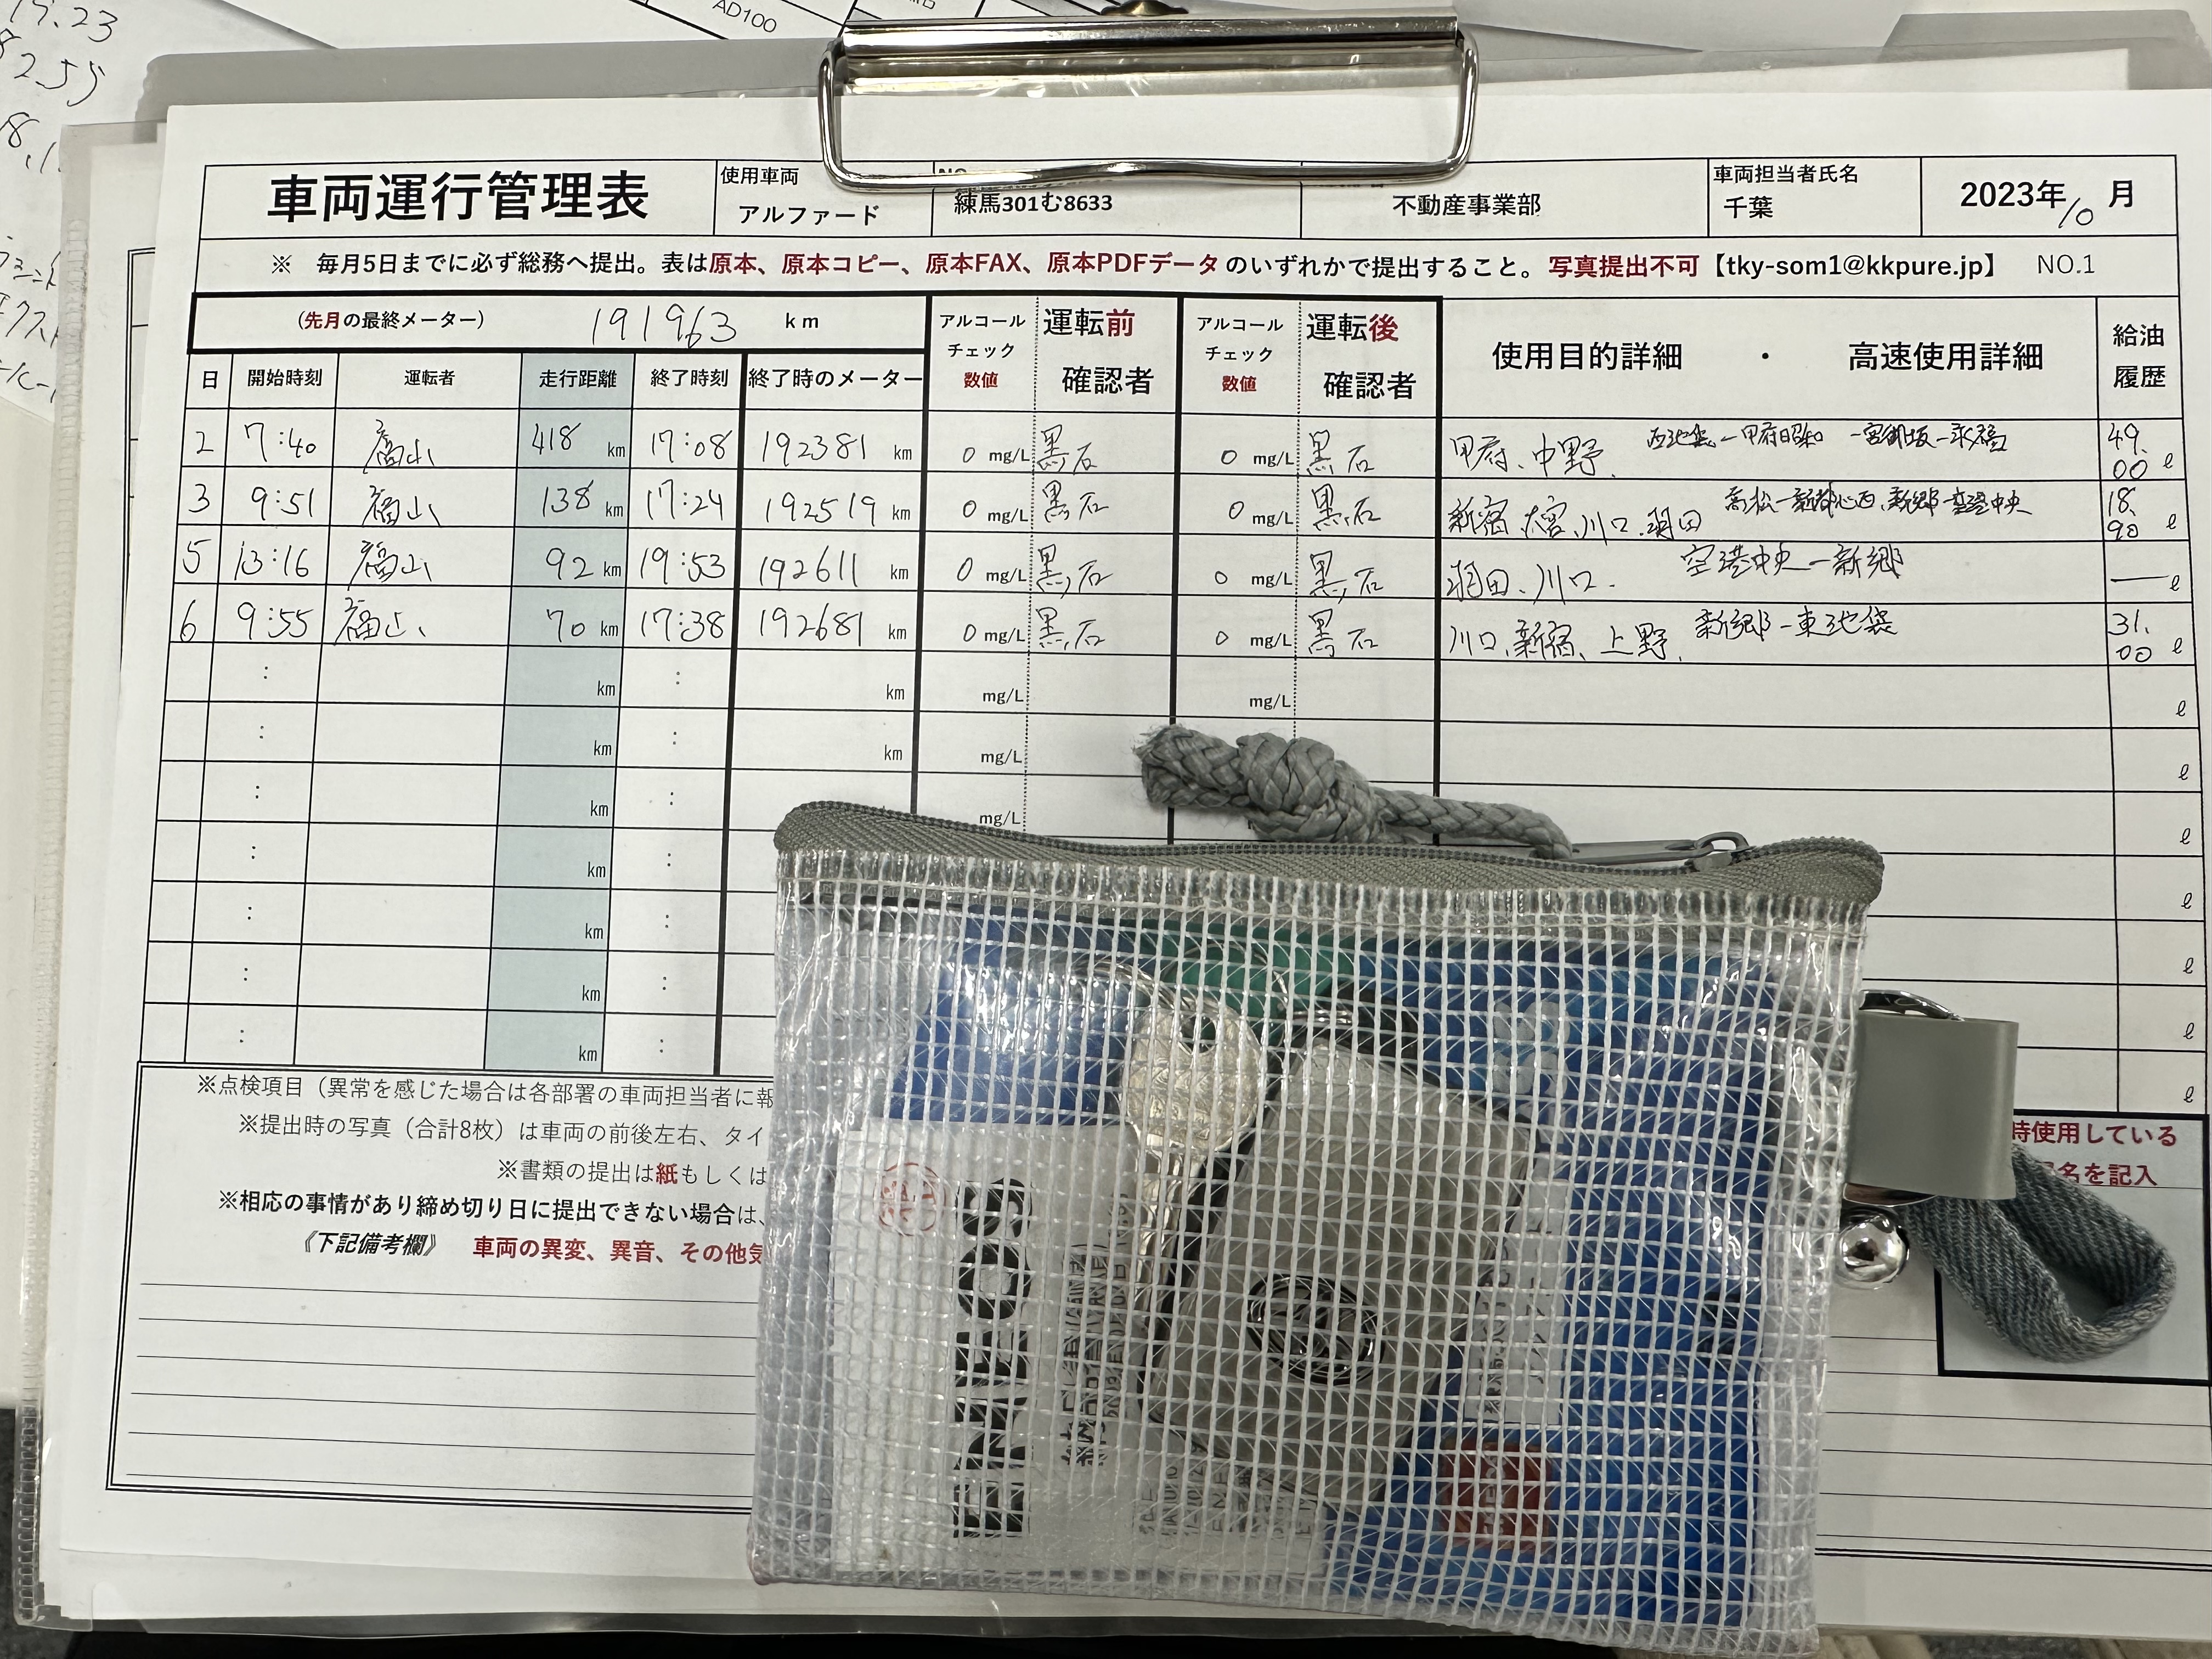 17.23
AD100
82.55
車両運行管理表 使用車両 アルファード 練馬301む8633 不動産事業部 車両担当者氏名 千葉 2023年10月
※ 毎月5日までに必ず総務へ提出。表は原本、原本コピー、原本FAX、原本PDFデータのいずれかで提出すること。写真提出不可【tky-som1@kkpure.jp】 NO.1
(先月の最終メーター) 191963 km
日 開始時刻 運転者 走行距離 終了時刻 終了時のメーター アルコールチェック数値 運転前確認者 アルコールチェック数値 運転後確認者 使用目的詳細 ・ 高速使用詳細 給油履歴
2 7:40 福山 418 km 17:08 192381 km 0 mg/L 黒石 0 mg/L 黒石 甲府、中野、 西池袋ー甲府昭和 ー宮御坂ー永福 49.00 ℓ
3 9:51 福山 138 km 17:24 192519 km 0 mg/L 黒石 0 mg/L 黒石 新宿、大宮、川口、羽田 高松ー新都心西、新郷ー空港中央 18.90 ℓ
5 13:16 福山 92 km 19:53 192611 km 0 mg/L 黒石 0 mg/L 黒石 羽田、川口、 空港中央ー新郷 ー ℓ
6 9:55 福山 70 km 17:38 192681 km 0 mg/L 黒石 0 mg/L 黒石 川口、新宿、上野、 新郷ー東池袋 31.00 ℓ
: km : km mg/L mg/L ℓ
: km : km mg/L ℓ
: km : mg/L ℓ
: km : ℓ
: km : ℓ
: km : ℓ
: km : ℓ
※点検項目（異常を感じた場合は各部署の車両担当者に報
※提出時の写真（合計8枚）は車両の前後左右、タイ
時使用している
※書類の提出は紙もしくは
名を記入
※相応の事情があり締め切り日に提出できない場合は、
《下記備考欄》 車両の異変、異音、その他気
ENEOS